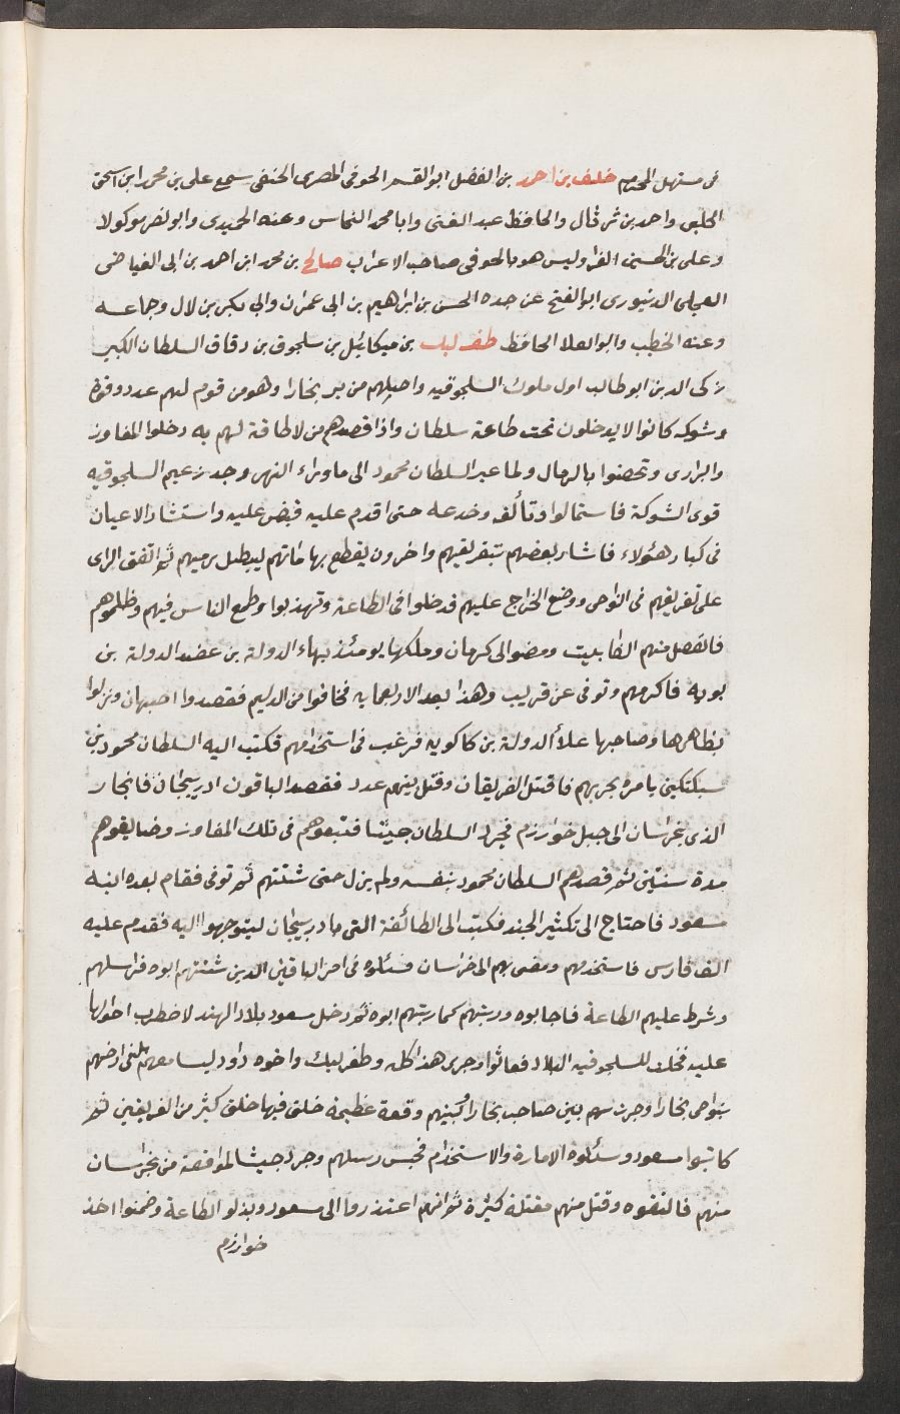 فى مستهل المحرم خلف بن احمد بن الفضل ابو القسم الحوفى المصرى الحنفى سمع على بن محمد ابن اسحق
الحلبى واحمد بن ثرثال والحافظ عبد الغنى وابا محمد النحاس وعنه الحميدى وابو نصر موكولا
وعلى بن الحسين الفرا وليس هو بالحوفى صاحب الاعراب صالح بن محمد ابن احمد بن ابى الفياضى
العجلى الدينورى ابو الفتح عن جده الحسن بن ابراهيم بن ابى عمران وابى بكر بن لال وجماعه
وعنه الخطيب وابو العلا الحافظ طغر لبك بن ميكائيل بن سلجوق بن دقاق السلطان الكبير
ركى الدين ابو طالب اول ملوك السلجوقيه واصلهم من بر بخارا وهو من قوم لهم عدد وقوة
وشوكه كانوا لا يدخلون تحت طاعة سلطان واذا قصدهم من لا طاقة لهم به دخلوا المفاوز
والبرارى وتحصنوا بالرمال ولما عبر السلطان محمود الى ما وراء النهر وجد زعيم السلجوقيه
قوى الشوكة فاستماله وتألفه وخدعه حتى اقدم عليه فقبض عليه واستشار الاعيان
فى كبار هئولاء فاشار بعضهم بتفريقهم واخرون بقطع ابهاماتهم ليبطل رميهم ثم اتفق الراى
على تفريقهم فى النواحى ووضع الخراج عليهم فدخلوا فى الطاعة وتهذبوا وطمع الناس فيهم وظلموهم
فانفصل منهم الفا بيت ومضوا الى كرمان وملكها يومئذ بهاء الدولة بن عضد الدولة بن
بويه فاكرمهم وتوفى عن قريب وهذا بعد الاربعمايه فخافوا من الديلم فقصدوا اصبهان ونزلوا
بظاهرها وصاحبها علاء الدولة بن كاكويه فرغب فى استخدامهم فكتب اليه السلطان محمود بن
سبكتكين يامره بحربهم فاقتتل الفريقان وقتل بينهم عدد فقصد الباقون ادربيجان فانحاز
الذى بخراسان الى جبل خوارزم فجرد السلطان جيشا فتبعوهم فى تلك المفاوز وضايقوهم
مدة سنتين ثم قصدهم السلطان محمود بنفسه ولم يزل حتى شتتهم ثم توفى فقام بعده ابنه
مسعود فاحتاج الى تكثير الجند فكتب الى الطائفة التى بادربيجان ليتوجهوا اليه فقدم عليه
الف فارس فاستخدمهم ومضى بهم الى خراسان فسئلوه فى امر الباقين الذين شتتهم ابوه فراسلهم
وشرط عليهم الطاعة فاجابوه ورتبهم كما رتبهم ابوه ثم دخل مسعود بلاد الهند لاضطراب احوالها
عليه فخلت للسلجوقيه البلاد فعاثوا وجرى هذا كله وطغر لبك واخوه داود ليسا معهم بل فى ارضهم
بنواحى بخارا وجرت بين صاحب بخارا وبينهم وقعة عظيمة خلق فيها خلق كثير من الفريقين ثم
كاتبوا مسعود وسئلوه الامارة والاستخدام فحبس رسلهم وجرد جيشا لمواقعة من بخراسان
منهم فالتقوه وقتل منهم مقتلة كثيرة ثم انهم اعتذروا الى مسعود وبذلوا الطاعة وضمنوا اخذ
خوارزم